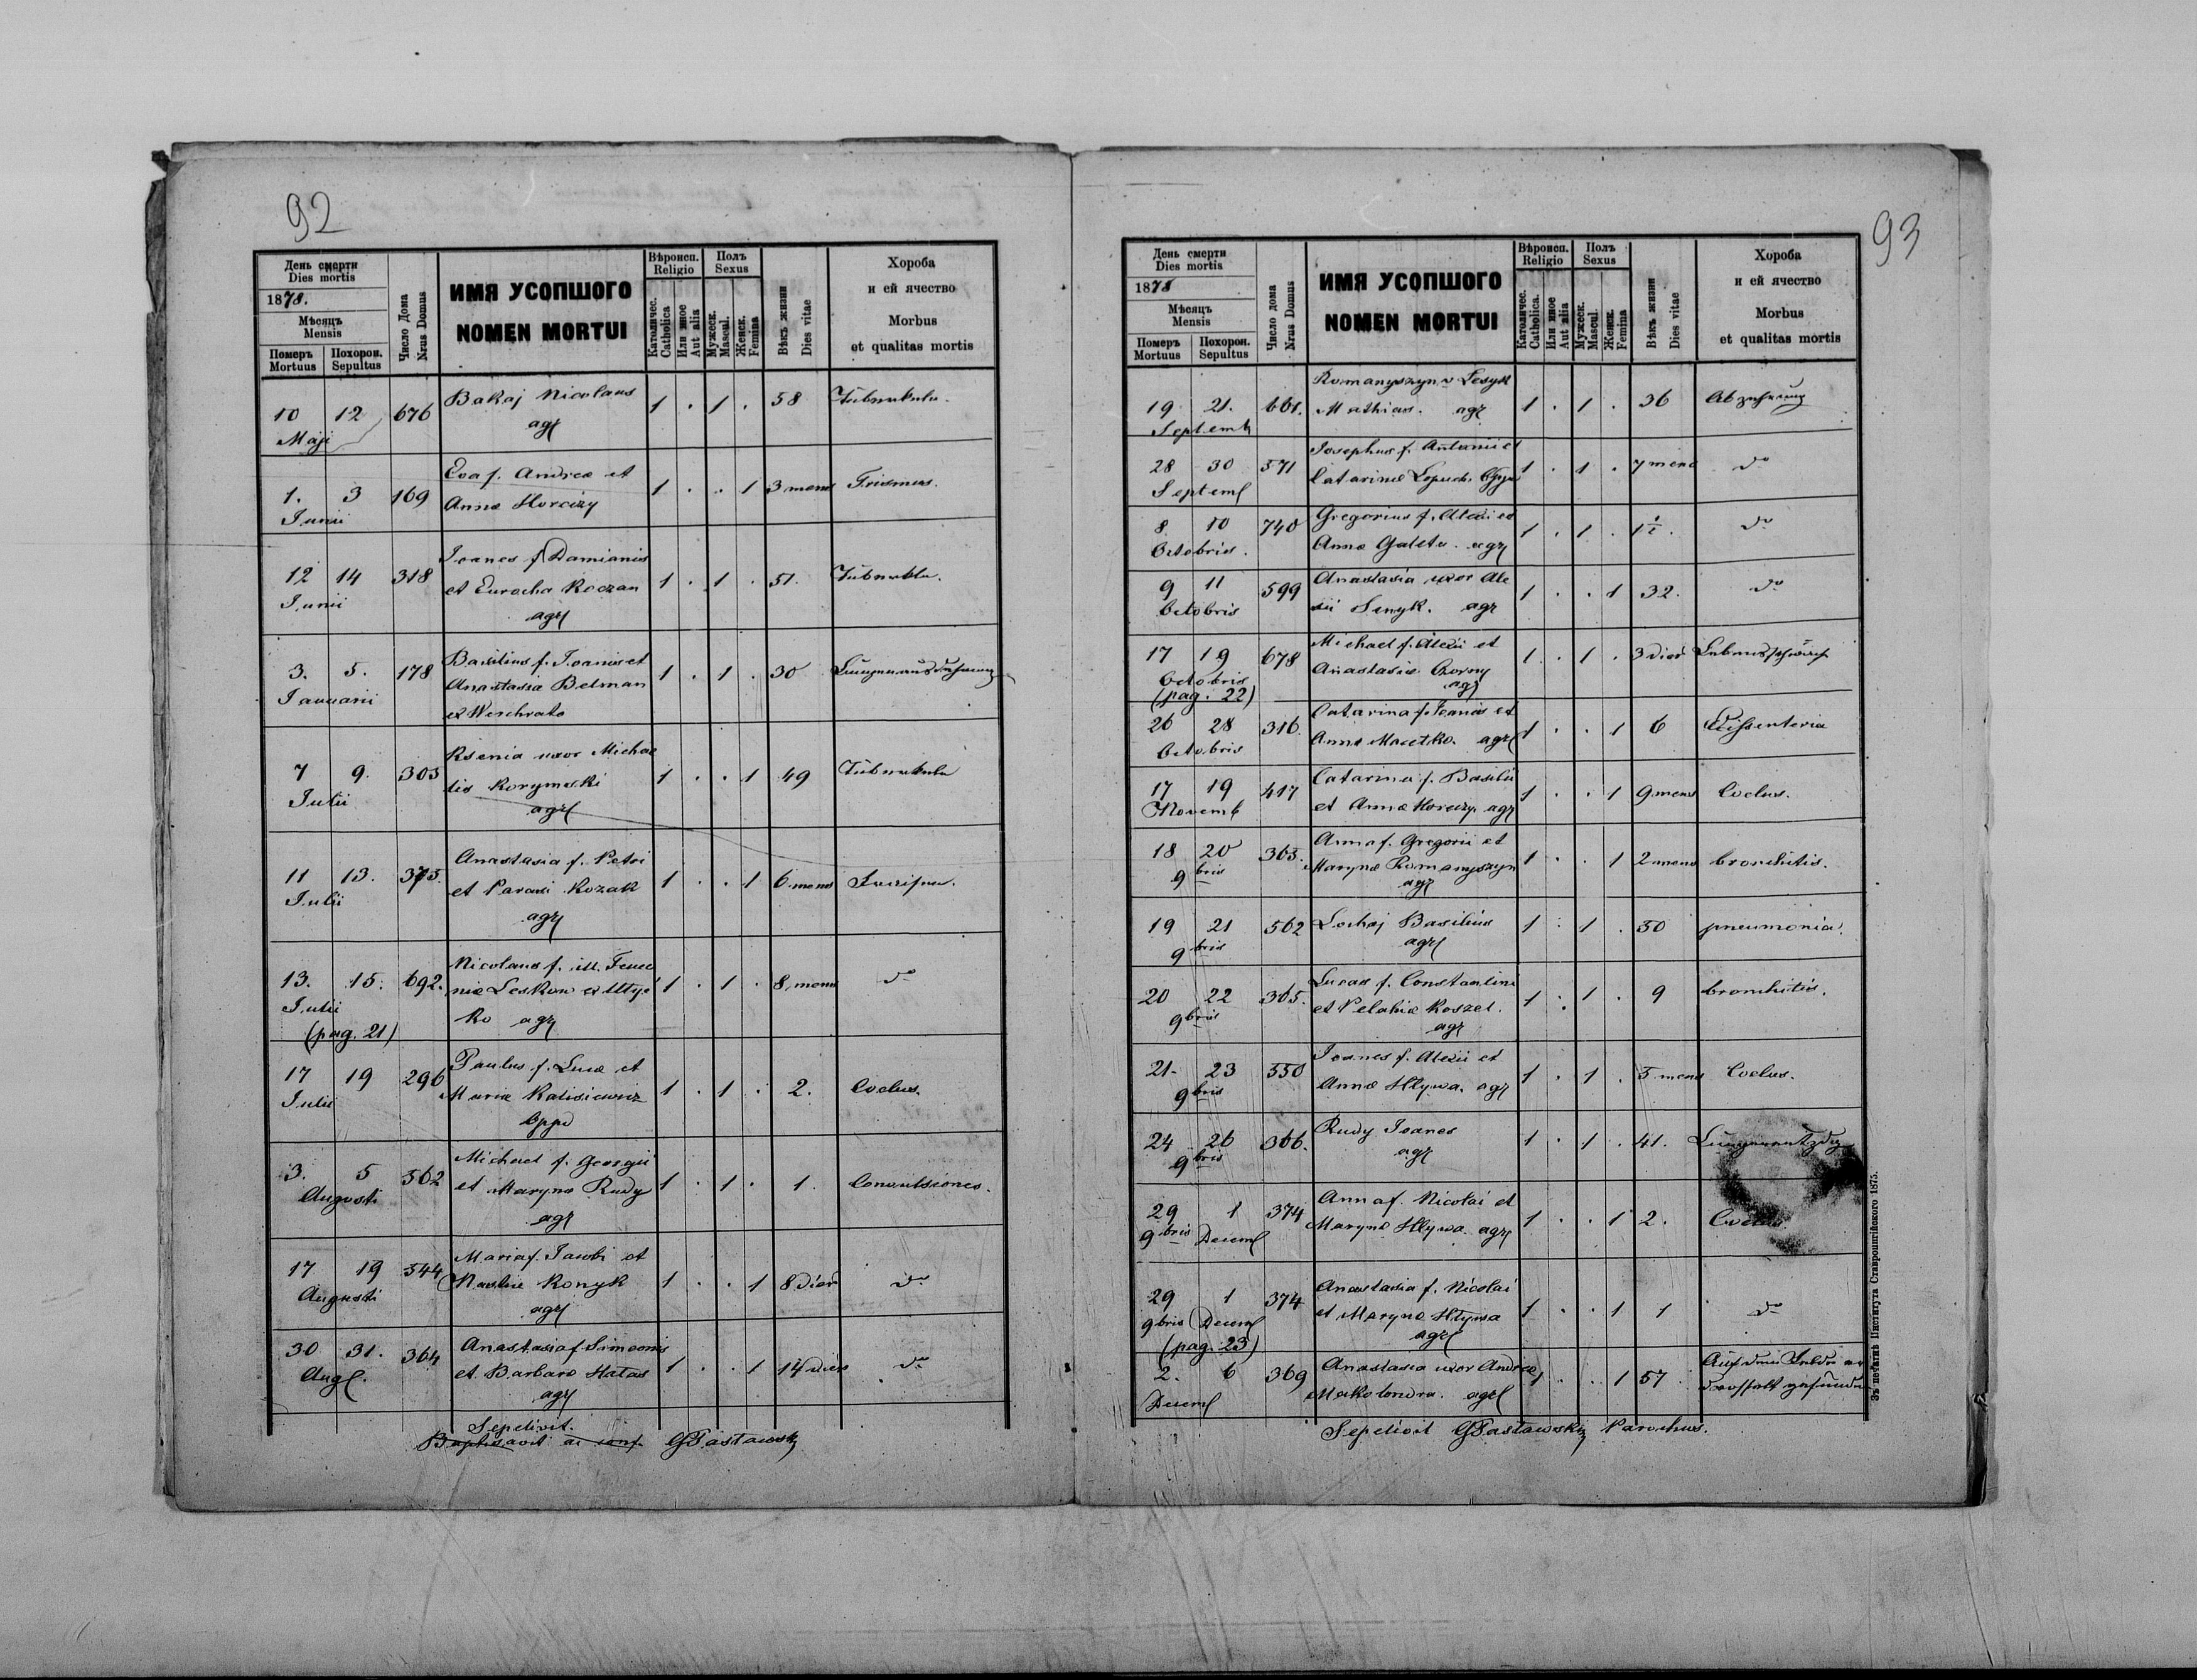 92
День смерти
Dies mortis
1878.
Мѣсяцъ
Mensis
Померъ Похорон.
Mortuus Sepultus
Число Дома
Nrus Domus
ИМЯ УСОПШОГО
NOMEN MORTUI
Вѣроисп.
Religio
Католичес.
Catholica
Или иное
Aut alia
Полъ
Sexus
Мужеск.
Mascul.
Женск.
Femina
Вѣкъ жизни
Dies vitae
Хороба
и ей ячество
Morbus
et qualitas mortis
10 12 676 Bakaj Nicolaus 1 . 1 . 58
Maji agr
1. 3 169 Eva f. Andreæ et 1 . . 1 3 mens Trismus.
Junii Annæ Horeczy
12 14 318 Joanes f. Damianis 1 . 1 . 51.
Junii et Eurocha Koczan
agr
3. 5. 178 Basilius f. Joanis et 1 . 1 . 30
Januarii Anastasiæ Belman
et Weschrata
7 9. 303 Ksenia uxor Michae 1 . . 1 49
Julii lis Korymski
agr
11 13. 375. Anastasia f. Petri 1 . . 1 6. mens
Julii et Parasi Kozak
agr
13. 15. 692. Nicolaus f. ill. 1 . 1 . 8 mens do
Julii niæ Leskow
(pag. 21) ko agr
17 19 296 Paulus f. Lucæ et 1 . 1 . 2. Coclus.
Julii Mariæ Kalisiewicz
Oppid
3. 5 562 Michael f. Georgii 1 . 1 . 1. Convulsiones.
Augusti et Marynæ Rudy
agr
17 19 544 Maria f. Jacobi et 1 . . 1 8 dier do
Augusti Nastiæ Konyk
agr
30 31. 364 Anastasia f. Simeonis 1 . . 1 14 dier do
Aug. et Barbaræ Hatas
agr
Sepelivit.
Baptisavit ac conf. GPastawsky
93
День смерти
Dies mortis
1878
Мѣсяцъ
Mensis
Померъ Похорон.
Mortuus Sepultus
Число дома
Nrus Domus
ИМЯ УСОПШОГО
NOMEN MORTUI
Вѣроисп.
Religio
Католичес.
Catholica.
Или иное
Aut alia
Полъ
Sexus
Мужеск.
Mascul.
Женск.
Femina
Вѣкъ жизни
Dies vitae
Хороба
и ей ячество
Morbus
et qualitas mortis
Romanyszyn v Lesyk
19 21. 661. Mathias. agr 1 . 1 . 36 Abzehrung
Septemb
28 30 571 Josephus f. Antonii et 1 . 1 . 7 mens do
Septemb Catarinæ Lopuch.
8 10 740 Gregorius f. Alexi et 1 . 1 . 1½. do
Octobris. Annæ Galeta. agr
9 11 599 Anastasia uxor Ale 1 . . 1 32. do
Octobris xii Senyk. agr
17 19 678 Michael f. Alexii et 1 . 1 . 3 dier Lebensschwäche
Octobris Anastasiæ Czorny
(pag. 22) agr
26 28 316. Catarina f. Joanis et 1 . . 1 6
Octobris Annæ Macetko. agr
17 19 417 Catarina f. Basilii 1 . . 1 9 mens Coclus.
Novemb et Annæ Horeczy. agr
18 20 363. Anna f. Gregorii et 1 . . 1 2 mens bronchitis.
9bris Marynæ Romanyszyn
agr
19 21 562 Lochaj Basilius 1 . 1 . 50 pneumonia.
9bris agr
20 22 365. Lucas f. Constantini 1 . 1 . 9 bronchitis.
9bris et Pelahiæ Koszel.
agr
21. 23 550 Joanes f. Alexii et 1 . 1 . 5 mens Coclus.
9bris Annæ Hlywa. agr
24 26 366. Rudy Joanes 1 . 1 . 41.
9bris agr
29 1 374 Anna f. Nicolai et 1 . . 1 2. Coclus.
9bris Decemb Marynæ Hlywa. agr
29 1 374 Anastasia f. Nicolai 1 . . 1 1 do
9bris Decemb et Marynæ Hlywa
(pag. 23) agr
2. 6 369 Anastasia uxor Andreæ 1 . . 1 57
Decemb Makolondra. agr
Sepelivit GPastawsky Parochus.
Зъ печатнѣ Института Ставропигійского 1875.